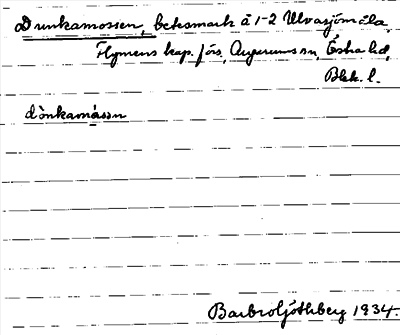 Drunkamossen, betesmark å 1-2 Ulvasjömåla,
Flymens kap. förs., Augerums sn, Östra hd,
Blek. l.
dònkamåssn
Barbro Ljöthberg 1934.